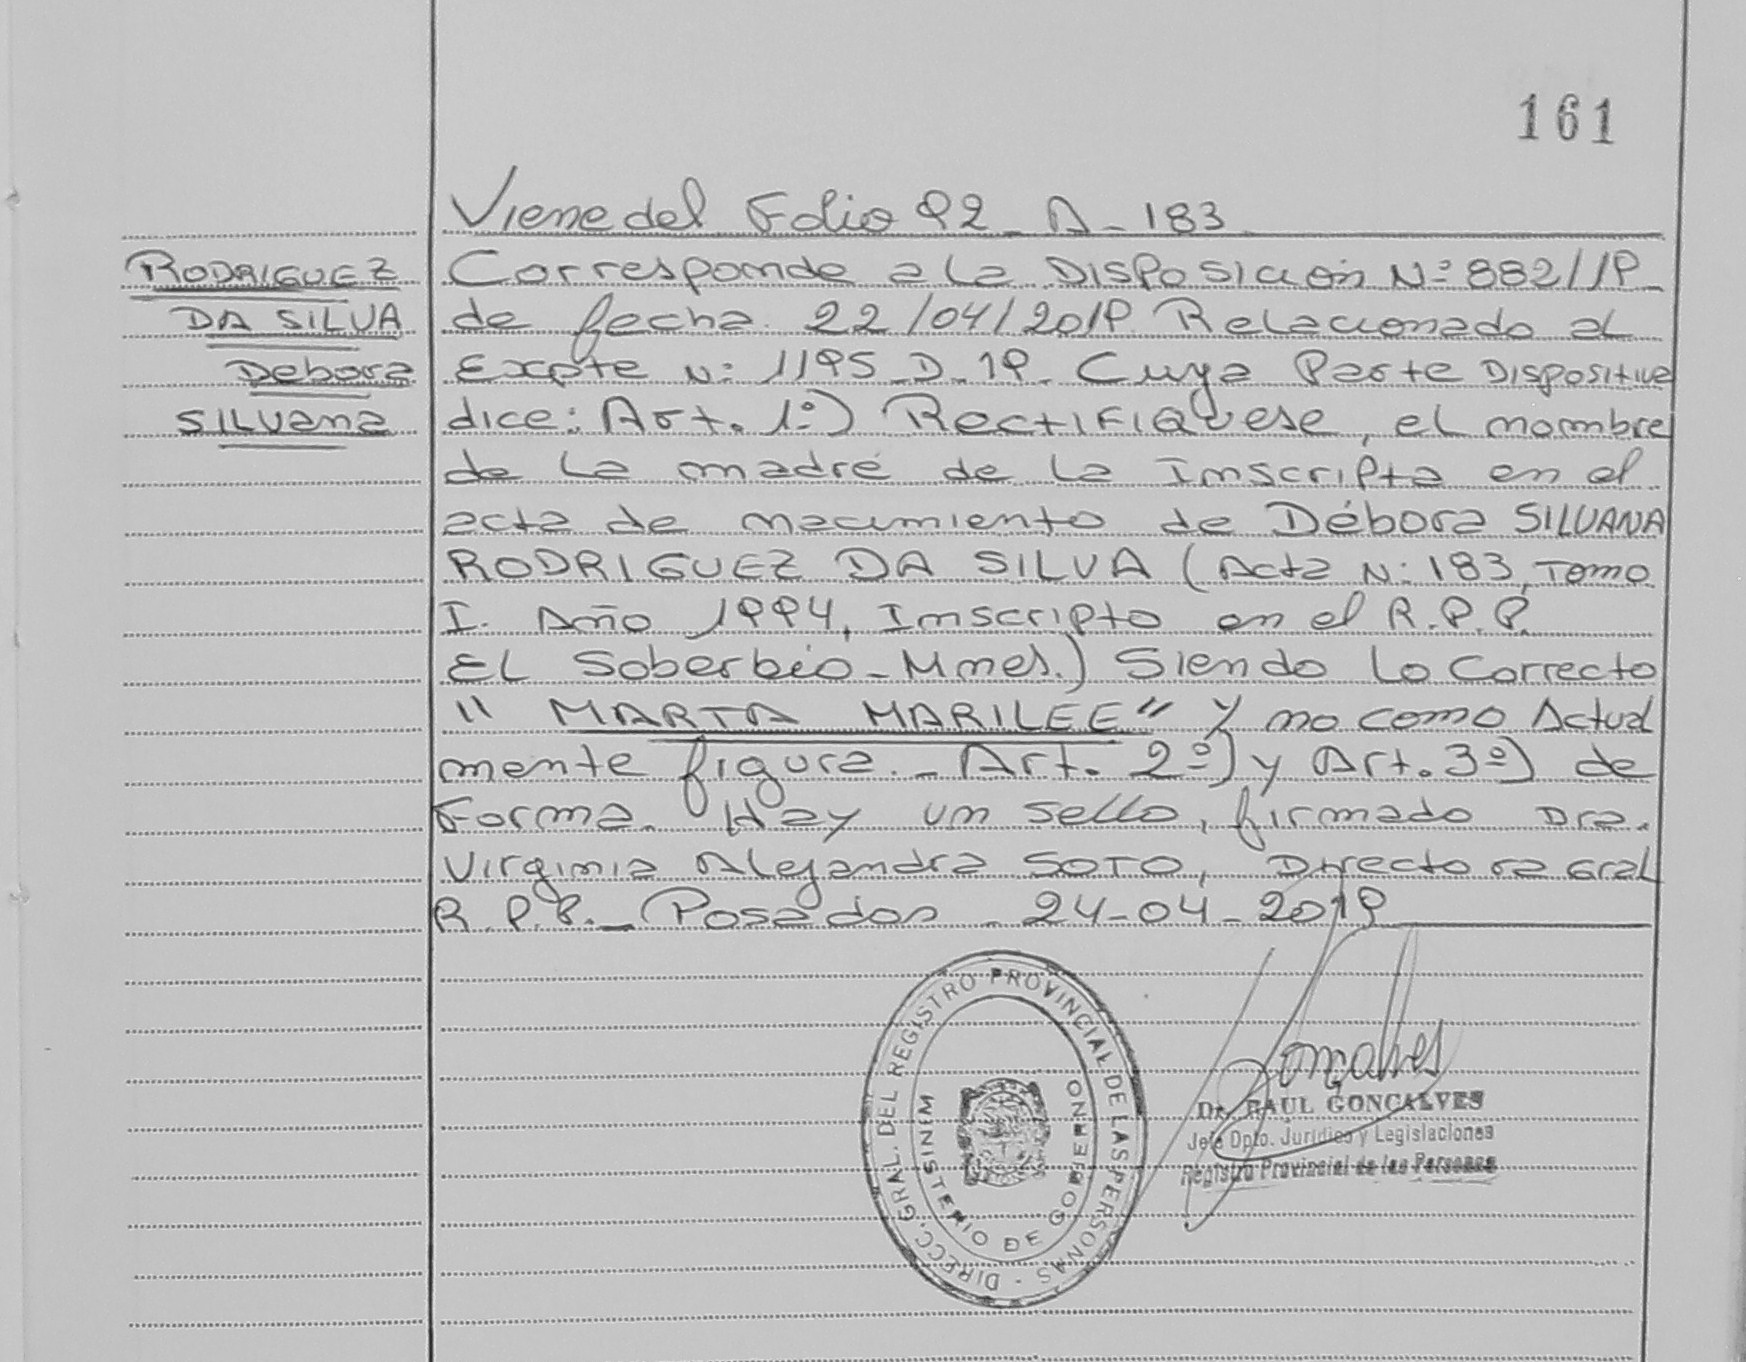 161
Viene del Folio 92 - A - 183
RODRIGUEZ
DA SILVA
Debora
SILVana
Corresponde a la Disposición Nº 882/19
de fecha 22/04/2019 Relacionado al
Expte Nº 1195 - D - 19. Cuya Parte Dispositiva
dice: Art. 1º) Rectifiquese, el nombre
de la madre de la Inscripta en el
acta de nacimiento de Débora SILVANA
RODRIGUEZ DA SILVA (Acta Nº 183, Tomo
I. Año 1994, Inscripto en el R.P.P.
El Soberbio - Mnes.) Siendo lo Correcto
" MARTA MARILEE" y no como Actual
mente figura. - Art. 2º) y Art. 3º) de
Forma. Hay un sello, firmado Dra.
Virginia Alejandra SOTO, Directora Gral
R.P.P. - Posadas - 24-04-2019
DIRECC. GRAL. DEL REGISTRO PROVINCIAL DE LAS PERSONAS -
MINISTERIO DE GOBIERNO
Gonçalves
Dr. RAUL GONCALVES
Jefe Dpto. Jurídico y Legislaciones
Registro Provincial de las Personas